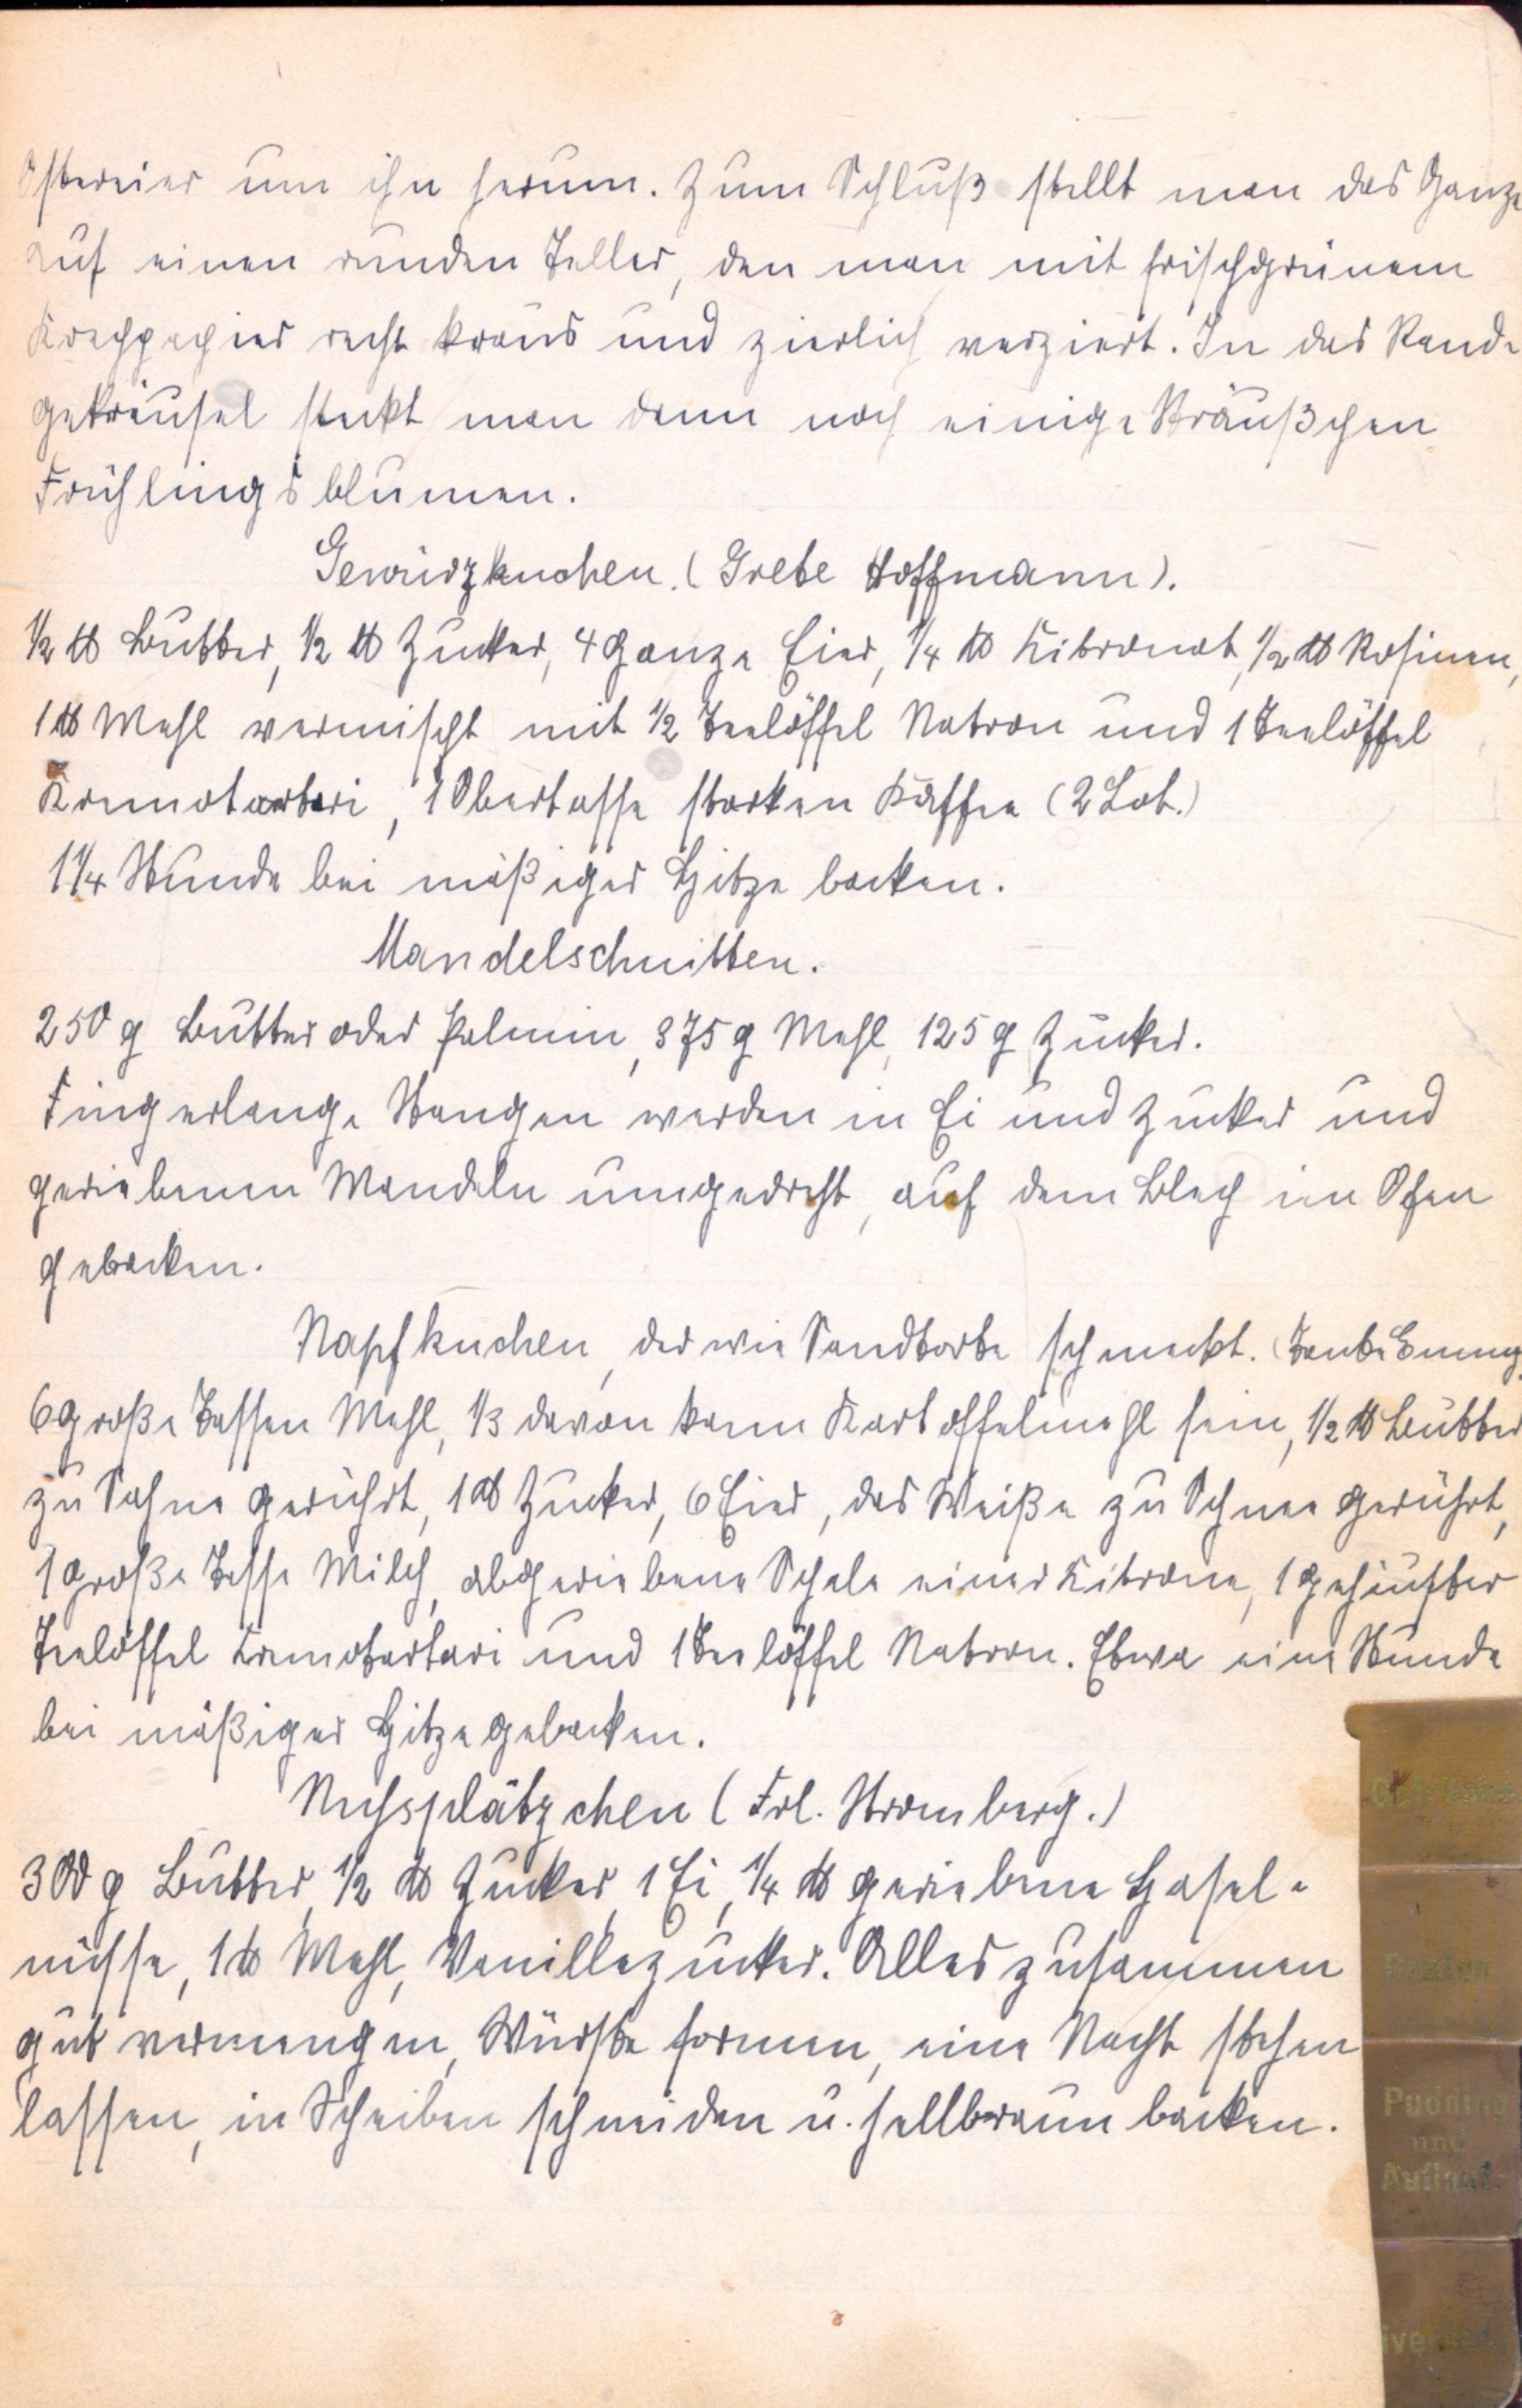 Ostereier um ihn herum. Zum Schluß stellt man das Ganze
auf einen runden Teller, den man mit frischgrünem
Krepppapier recht kraus und zierlich verziert. In das Rand-
gekräusel steckt man dann noch einige Sträußchen
Frühlingsblumen.
Gewürzkuchen. (Grete Hoffmann).
½ ℔ Butter, ½ ℔ Zucker, 4 ganze Eier, ¼ ℔ Zitronat, ½ ℔ Rosinen,
1 ℔ Mehl vermischt mit ½ Teelöffel Natron und 1 Teelöffel
Kremotartari, 1 Obertasse starken Kaffee (2 Lot.)
1¼ Stunde bei mäßiger Hitze backen.
Mandelschnitten.
250 g Butter oder Palmin, 375 g Mehl, 125 g Zucker.
Fingerlange Stangen werden in Ei und Zucker und
geriebenen Mandeln umgedreht, auf dem Blech im Ofen
gebacken.
Napfkuchen, der wie Sandtorte schmeckt. (Tante Emmy
6 große Tassen Mehl, 1/3 davon kann Kartoffelmehl sein, ½ ℔ Butter
zu Sahne gerührt, 1 ℔ Zucker, 6 Eier, das Weiße zu Schnee gerührt,
1 große Tasse Milch, abgeriebene Schale einer Zitrone, 1 gehäufter
Teelöffel Kremotartari und 1 Teelöffel Natron. Etwa eine Stunde
bei mäßiger Hitze gebacken.
Nussplätzchen (Frl. Stromberg.)
300 g Butter, ½ ℔ Zucker, 1 Ei, ¼ ℔ geriebene Hasel-
nüsse, 1 ℔ Mehl, Vanillezucker. Alles zusammen
gut vermengen, Würste formen, eine Nacht stehen
lassen, in Scheiben schneiden u. hellbraun backen.
Getränke
Pudding
und
Auflauf